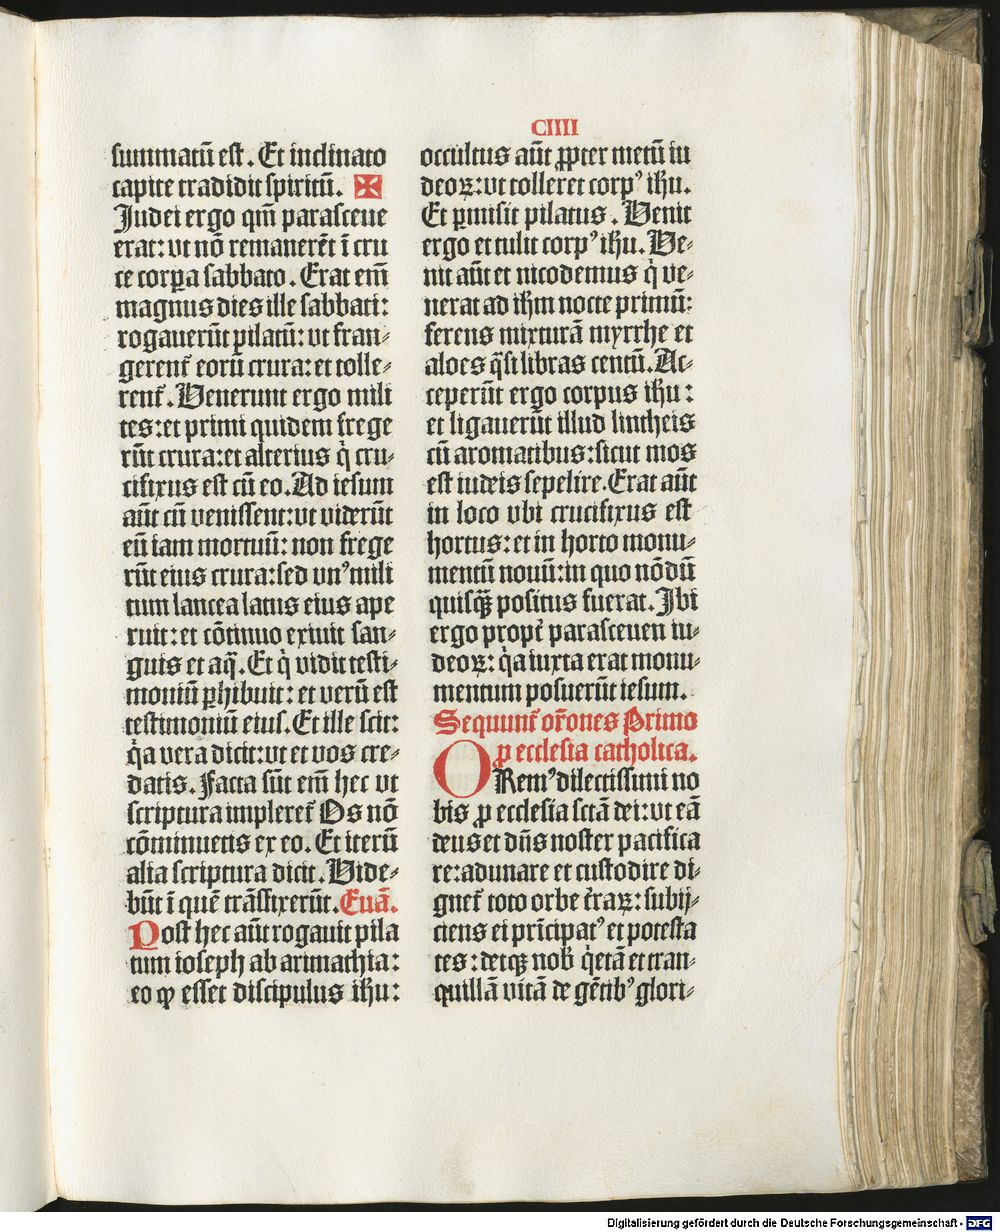 CIIII
summatū est. Et inclinato
capite tradidit spiritū. ✠
Judei ergo qm̄ parasceue
erat: vt nō remanerēt ī cru
ce corꝑa sabbato. Erat em̄
magnus dies ille sabbati:
rogauerūt pilatū: vt fran⸗
gerent᷑ eorū crura: et tolle⸗
rent᷑. Venerunt ergo mili
tes: et primi quidem frege
rūt crura: et alterius q̇ cru⸗
cifixus est cū eo. Ad iesum
aūt cū venissent: vt viderūt
eū iam mortuū: non frege
rūt eius crura: sed vnꝰ mili
tum lancea latus eius ape
ruit: et cōtinuo exiuit san⸗
guis et aq̄. Et q̇ vidit testi⸗
moniū ꝑhibuit: et verū est
testimoniū eius. Et ille scit:
q̇a vera dicit: vt et vos cre⸗
datis. Facta sūt em̄ hec vt
scriptura impleret᷑ Os nō
cōminuetis ex eo. Et iterū
alia scriptura dicit. Vide⸗
būt ī quē trāsfixerūt. Euā.
Post hec aūt rogauit pila
tum ioseph ab arimathia:
eo ꝙ esset discipulus ihū:
occultus aūt ꝓpter metū iu
deoꝝ: vt tolleret corpꝰ ihū.
Et ꝑmisit pilatus. Venit
ergo et tulit corpꝰ ihū. Ve⸗
nit aūt et nicodemus q̇ ve⸗
nerat ad ihm̄ nocte primū:
ferens mixturā myrrhe et
aloes q̄si libras centū. Ac⸗
ceperūt ergo corpus ihū:
et ligauerūt illud lintheis
cū aromatibus: sicut mos
est iudeis sepelire. Erat aūt
in loco vbi crucifixus est
hortus: et in horto monu⸗
mentū nouū: in quo nōdū
quisq̄ꝫ positus fuerat. Ibi
ergo propt᷑ parasceuen iu⸗
deoꝝ: q̇a iuxta erat monu⸗
mentum posuerūt iesum.
Sequunt᷑ or̄ones Primo
ꝓ ecclesia catholica.
ORemꝰ dilectissimi no
bis ꝓ ecclesia sctā dei: vt eā
deus et dn̄s noster pacifica
re: adunare et custodire di⸗
gnet᷑ toto orbe t᷑raꝝ: subij⸗
ciens ei prīcipatꝰ et potesta
tes: detqꝫ nob̄ q̇etā et tran⸗
quillā vitā de gētibꝰ glori⸗
Digitalisierung gefördert durch die Deutsche Forschungsgemeinschaft - DFG